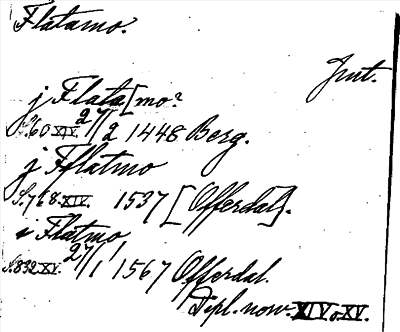 Flatamo.
Jmt.
j Flata[mo?
S.60 XIV. 27/2 1448 Berg.
j Fflatmo
S.728.XIV. 1537 [Offerdal].
i Flatmo
S.832.XV. 27/1 1567 Offerdal.
Dipl. norv. XIV o. XV.